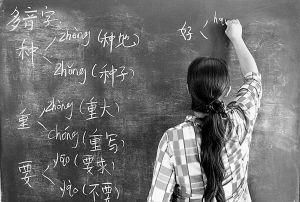 多音字
种 zhòng (种地)
zhǒng (种子)
重 zhòng (重大)
chóng (重写)
要 yāo (要求)
yào (不要)
好 hǎ